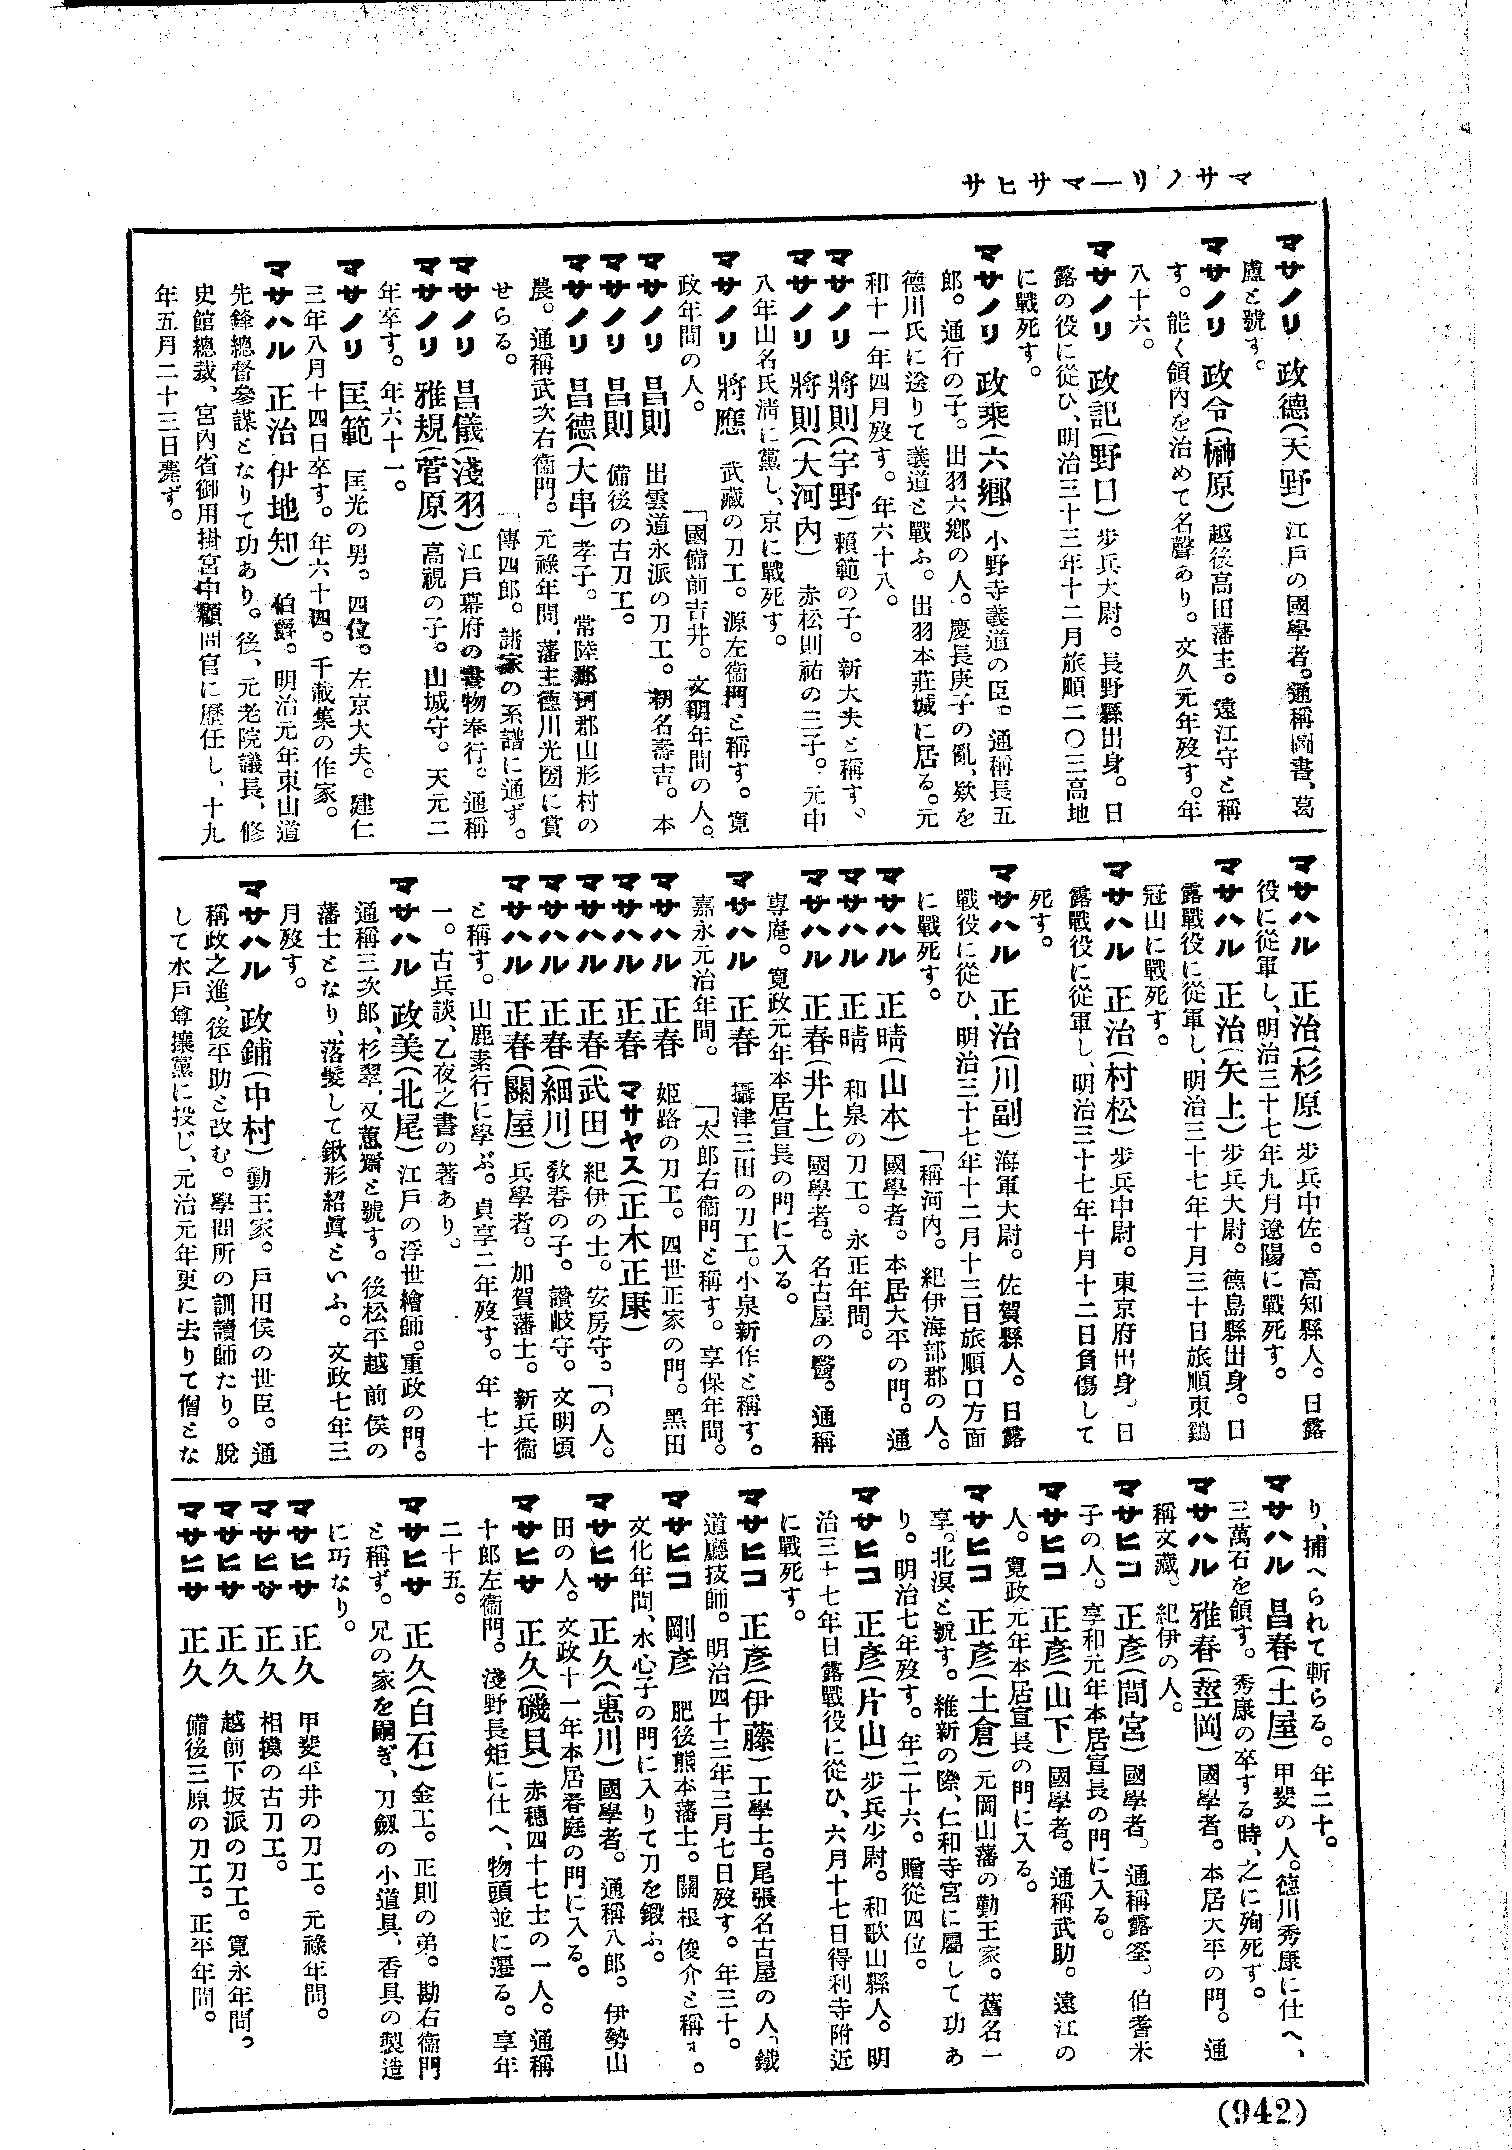 マサノリ―マサヒサ
マサノリ 政德(天野) 江戶の國學者。通稱圖書、葛
廬と號す。
マサノリ 政令(榊原) 越後高田藩主。遠江守と稱
す。能く領內を治めて名聲あり。文久元年歿す。年
八十六。
マサノリ 政記(野口) 步兵大尉。長野縣出身。日
露の役に從ひ、明治三十三年十二月旅順二〇三高地
に戰死す。
マサノリ 政乘(六鄕) 小野寺義道の臣。通稱長五
郞。通行の子。出羽六鄕の人。慶長庚子の亂、欵を
德川氏に送りて義道と戰ふ。出羽本莊城に居る。元
和十一年四月歿す。年六十八。
マサノリ 將則(宇野) 賴範の子。新大夫と稱す、
マサノリ 將則(大河內) 赤松則祐の三子。元中
八年山名氏淸に黨し、京に戰死す。
マサノリ 將應 武藏の刀工。源左衞門と稱す。寬
政年間の人。 「國備前吉井。文明年間の人。
マサノリ 昌則 出雲道永派の刀工。初名壽吉。本
マサノリ 昌則 備後の古刀工。
マサノリ 昌德(大串) 孝子。常陸那珂郡山形村の
農。通稱武次右衞門。元祿年間、藩主德川光圀に賞
せらる。 「傳四郞。諸家の系譜に通ず。
マサノリ 昌儀(淺羽) 江戶幕府の書物奉行。通稱
マサノリ 雅規(菅原) 高視の子。山城守。天元二
年卒す。年六十一。
マサノリ 匡範 匡光の男。四位。左京大夫。建仁
三年八月十四日卒す。年六十四。千載集の作家。
マサハル 正治 伊地知) 伯爵。明治元年東山道
先鋒總督參謀となりて功あり。後、元老院議長、修
史館總裁、宮內省御用掛宮中顧問官に歷任し、十九
年五月二十三日薨ず。
マサハル 正治(杉原) 步兵中佐。高知縣人。日露
役に從軍し、明治三十七年九月遼陽に戰死す。
マサハル 正治(矢上) 步兵大尉。德島縣出身。日
露戰役に從軍し、明治三十七年十月三十日旅順東鷄
冠山に戰死す。
マサハル 正治(村松) 步兵中尉。東京府出身。日
露戰役に從軍し、明治三十七年十月十二日負傷して
死す。
マサハル 正治(川副) 海軍大尉。佐賀縣人。日露
戰役に從ひ、明治三十七年十二月十三日旅順口方面
に戰死す。 「稱河內。紀伊海部郡の人。
マサハル 正晴(山本) 國學者。本居大平の門。通
マサハル 正晴 和泉の刀工。永正年間。
マサハル 正春(井上) 國學者。名古屋の醫。通稱
專庵。寬政元年本居宣長の門に入る。
マサハル 正春 攝津三田の刀工。小泉新作と稱す。
嘉永元治年間。 「太郞右衞門と稱す。享保年間。
マサハル 正春 姬路の刀工。四世正家の門。黑田
マサハル 正春 マサヤス(正木正康)
マサハル 正春(武田) 紀伊の士。安房守。「の人。
マサハル 正春(細川) 敎春の子。讚岐守。文明頃
マサハル 正春(關屋) 兵學者。加賀藩士。新兵衞
と稱す。山鹿素行に學ぶ。貞享二年歿す。年七十
一。古兵談、乙夜之書の著あり。
マサハル 政美(北尾) 江戶の浮世繪師。重政の門。
通稱三次郞、杉翠、又蕙齋と號す。後松平越前侯の
藩士となり、落髮して鍬形紹眞といふ。文政七年三
月歿す。
マサハル 政鋪(中村) 勤王家。戶田侯の世臣。通
稱政之進、後平助と改む。學問所の訓讀師たり。脫
して水戶尊攘黨に投じ、元治元年更に去りて僧とな
り、捕へられて斬らる。年二十。
マサハル 昌春(土屋) 甲斐の人。德川秀康に仕へ、
三萬石を領す。秀康の卒する時、之に殉死す。
マサハル 雅春(莖岡) 國學者。本居大平の門。通
稱文藏。紀伊の人。
マサヒコ 正彥(間宮) 國學者。通稱露筌。伯耆米
子の人。享和元年本居宣長の門に入る。
マサヒコ 正彥(山下) 國學者。通稱武助。遠江の
人。寬政元年本居宣長の門に入る。
マサヒコ 正彥(土倉) 元岡山藩の勤王家。舊名一
享。北溟と號す。維新の際、仁和寺宮に屬して功あ
り。明治七年歿す。年二十六。贈從四位。
マサヒコ 正彥(片山) 步兵少尉。和歌山縣人。明
治三十七年日露戰役に從ひ、六月十七日得利寺附近
に戰死す。
マサヒコ 正彥(伊藤) 工學士。尾張名古屋の人、鐵
道廳技師。明治四十三年三月七日歿す。年三十。
マサヒコ 剛彥 肥後熊本藩士。關根俊介と稱す。
文化年間、水心子の門に入りて刀を鍛ふ。
マサヒサ 正久(惠川) 國學者。通稱八郞。伊勢山
田の人。文政十一年本居春庭の門に入る。
マサヒサ 正久(磯貝) 赤穗四十七士の一人。通稱
十郞左衞門。淺野長矩に仕へ、物頭並に遷る。享年
二十五。
マサヒサ 正久(白石) 金工。正則の弟。勘右衞門
と稱ず。兄の家を嗣ぎ、刀劔の小道具、香具の製造
に巧なり。
マサヒサ 正久 甲斐平井の刀工。元祿年間。
マサヒサ 正久 相摸の古刀工。
マサヒサ 正久 越前下坂派の刀工。寬永年間。
マサヒサ 正久 備後三原の刀工。正平年間。
(942)